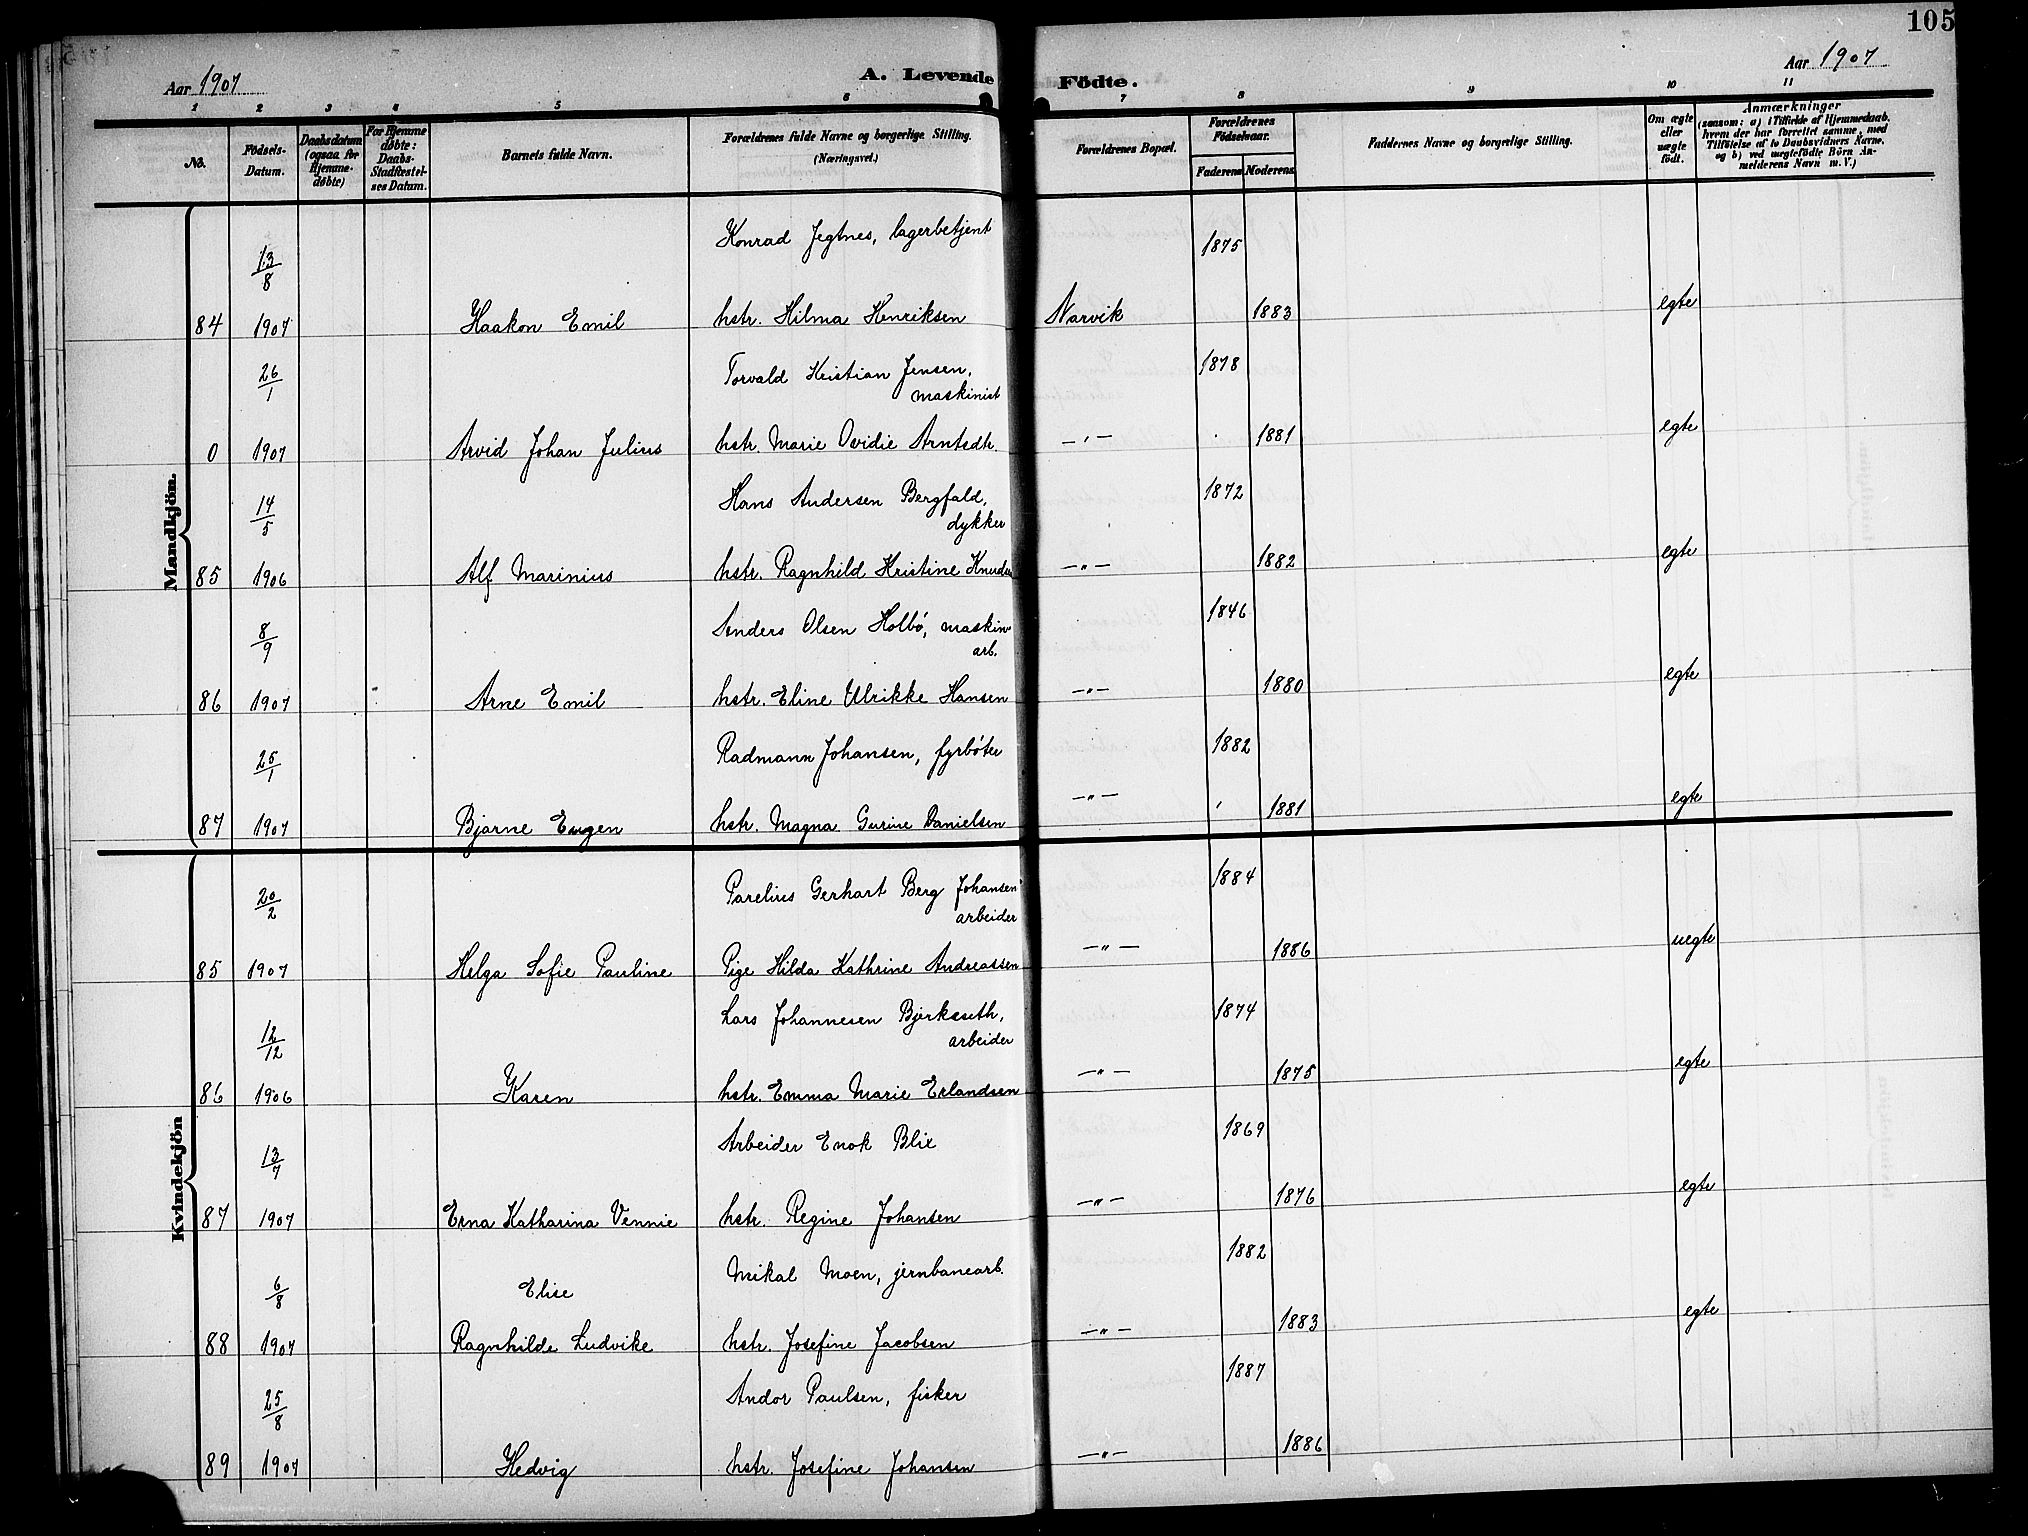 105
Aar 1907
A. Levende Födte.
Aar 1907
1 2 3 4 5 6 7 8 9 10 11
No.
Födsels-
Datum.
Daabsdatum
(ogsaa for
Hjemme-
døbte)
For Hjemme
døbte:
Daabs-
Stadfæstel-
ses Datum.
Barnets fulde Navn.
Forældrenes fulde Navne og borgerlige Stilling.
(Næringsvei.)
Forældrenes Bopæl.
Forældrenes
Födselsaar.
Faderens Moderens
Faddernes Navne og borgerlige Stilling.
Om ægte
eller
uægte
födt.
Anmærkninger
(saasom: a) i Tilfælde af Hjemmedaab,
hvem der har forrettet samme, med
Tilföielse af to Daabsvidners Navne,
og b) ved uægtefödte Börn An-
melderens Navn m. V.)
Mandkjön.
Konrad Jegtnes, lagerbetjent 1875
13/8
84 1907 Haakon Emil hstr. Hilma Henriksen Narvik 1883 egte
26/1 Torvald Kristian Jensen, 1878
maskinist
0 1907 Arvid Johan Julius hstr. Marie Ovidie Arntsdtr. —„— 1881 egte
14/5 Hans Andersen Bergfald, 1872
dykker
85 1906 Alf Marinius hstr. Ragnhild Kristine Knudsen —„— 1882 egte
8/9 Anders Olsen Holbø, maskin- 1846
arb.
86 1907 Arne Emil hstr. Eline Ulrikke Hansen —„— 1880 egte
25/1 Radmann Johansen, fyrbøter 1882
87 1907 Bjarne Eugen hstr. Magna Gurine Danielsen —„— 1881 egte
Kvindekjön
20/2 Parelius Gerhart Berg Johansen 1884
arbeider
85 1907 Helga Sofie Pauline Pige Hilda Kathrine Andreassen —„— 1886 uegte
12/12 Lars Johannesen Bjerkseth, 1874
arbeider
86 1906 Karen hstr. Emma Marie Erlandsen —„— 1875 egte
13/7 Arbeider Enok Blix 1869
87 1907 Erna Katharina Vennie hstr. Regine Johansen —„— 1876 egte
6/8 Mikal Moen, jernbanearb. 1882
Elise
88 1907 Ragnhilde Ludvike hstr. Josefine Jacobsen —„— 1883 egte
25/8 Andor Paulsen, fisker 1887
89 1907 Hedvig hstr. Josefine Johansen —„— 1886